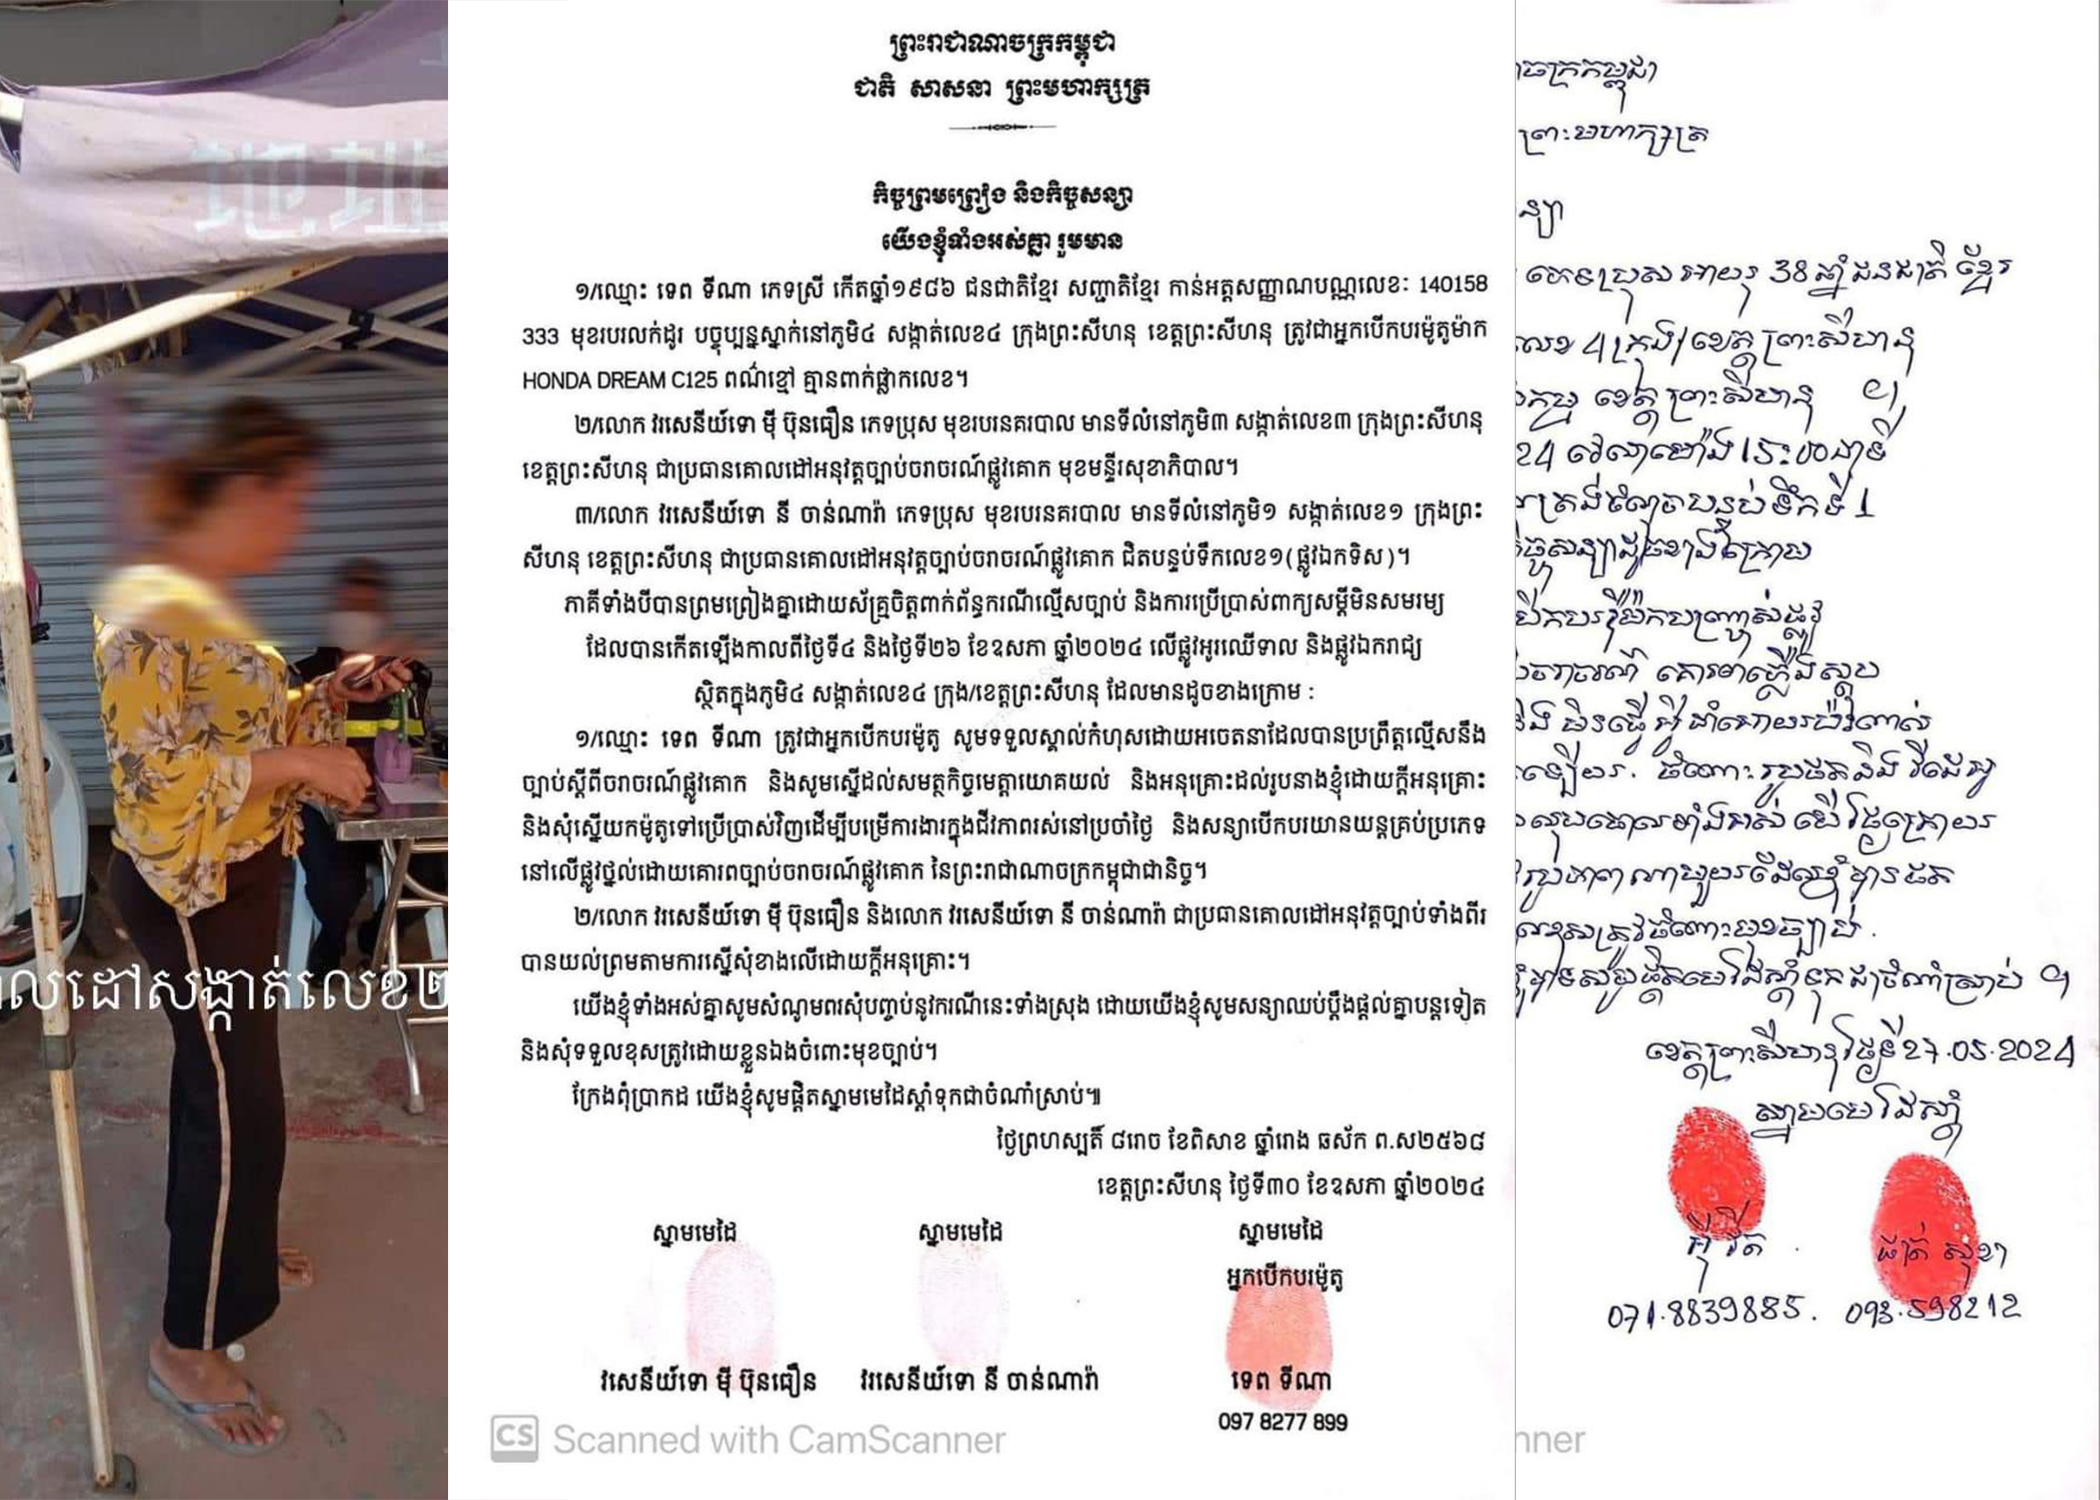 លដៅសង្កាត់លេខ២
ព្រះរាជាណាចក្រកម្ពុជា
ជាតិ សាសនា ព្រះមហាក្សត្រ
កិច្ចព្រមព្រៀង និងកិច្ចសន្យា
យើងខ្ញុំទាំងអស់គ្នា រួមមាន
១/ឈ្មោះ ទេព ទីណា ភេទស្រី កើតឆ្នាំ១៩៨៦ ជនជាតិខ្មែរ សញ្ជាតិខ្មែរ កាន់អត្តសញ្ញាណបណ្ណលេខៈ 140158
333 មុខរបរលក់ដូរ បច្ចុប្បន្នស្នាក់នៅភូមិ៤ សង្កាត់លេខ៤ ក្រុងព្រះសីហនុ ខេត្តព្រះសីហនុ ត្រូវជាអ្នកបើកបរម៉ូតូម៉ាក
HONDA DREAM C125 ពណ៌ខ្មៅ គ្មានពាក់ផ្លាកលេខ។
២/លោក វរសេនីយ៍ទោ ម៉ី ប៊ុនធឿន ភេទប្រុស មុខរបរនគរបាល មានទីលំនៅភូមិ៣ សង្កាត់លេខ៣ ក្រុងព្រះសីហនុ
ខេត្តព្រះសីហនុ ជាប្រធានគោលដៅអនុវត្តច្បាប់ចរាចរណ៍ផ្លូវគោក មុខមន្ទីរសុខាភិបាល។
៣/លោក វរសេនីយ៍ទោ នី ចាន់ណារ៉ា ភេទប្រុស មុខរបរនគរបាល មានទីលំនៅភូមិ១ សង្កាត់លេខ១ ក្រុងព្រះ
សីហនុ ខេត្តព្រះសីហនុ ជាប្រធានគោលដៅអនុវត្តច្បាប់ចរាចរណ៍ផ្លូវគោក ជិតបន្ទប់ទឹកលេខ១(ផ្លូវឯកទិស)។
ភាគីទាំងបីបានព្រមព្រៀងគ្នាដោយស័គ្រចិត្តពាក់ព័ន្ធករណីល្មើសច្បាប់ និងការប្រើប្រាស់ពាក្យសម្ដីមិនសមរម្យ
ដែលបានកើតឡើងកាលពីថ្ងៃទី៤ និងថ្ងៃទី២៦ ខែឧសភា ឆ្នាំ២០២៤ លើផ្លូវអូរឈើទាល និងផ្លូវឯករាជ្យ
ស្ថិតក្នុងភូមិ៤ សង្កាត់លេខ៤ ក្រុង/ខេត្តព្រះសីហនុ ដែលមានដូចខាងក្រោម :
១/ឈ្មោះ ទេព ទីណា ត្រូវជាអ្នកបើកបរម៉ូតូ សូមទទួលស្គាល់កំហុសដោយអចេតនាដែលបានប្រព្រឹត្តល្មើសនឹង
ច្បាប់ស្ដីពីចរាចរណ៍ផ្លូវគោក និងសូមស្នើដល់សមត្ថកិច្ចមេត្តាយោគយល់ និងអនុគ្រោះដល់រូបនាងខ្ញុំដោយក្ដីអនុគ្រោះ
និងសុំស្នើយកម៉ូតូទៅប្រើប្រាស់វិញដើម្បីបម្រើការងារក្នុងជីវភាពរស់នៅប្រចាំថ្ងៃ និងសន្យាបើកបរយានយន្តគ្រប់ប្រភេទ
នៅលើផ្លូវថ្នល់ដោយគោរពច្បាប់ចរាចរណ៍ផ្លូវគោក នៃព្រះរាជាណាចក្រកម្ពុជាជានិច្ច។
២/លោក វរសេនីយ៍ទោ ម៉ី ប៊ុនធឿន និងលោក វរសេនីយ៍ទោ នី ចាន់ណារ៉ា ជាប្រធានគោលដៅអនុវត្តច្បាប់ទាំងពីរ
បានយល់ព្រមតាមការស្នើសុំខាងលើដោយក្ដីអនុគ្រោះ។
យើងខ្ញុំទាំងអស់គ្នាសូមសំណូមពរសុំបញ្ចប់នូវករណីនេះទាំងស្រុង ដោយយើងខ្ញុំសូមសន្យាឈប់ប្ដឹងផ្ដល់គ្នាបន្តទៀត
និងសុំទទួលខុសត្រូវដោយខ្លួនឯងចំពោះមុខច្បាប់។
ក្រែងពុំប្រាកដ យើងខ្ញុំសូមផ្ដិតស្នាមមេដៃស្ដាំទុកជាចំណាំស្រាប់៕
ថ្ងៃព្រហស្បតិ៍ ៨រោច ខែពិសាខ ឆ្នាំរោង ឆស័ក ព.ស២៥៦៨
ខេត្តព្រះសីហនុ ថ្ងៃទី៣០ ខែឧសភា ឆ្នាំ២០២៤
ស្នាមមេដៃ ស្នាមមេដៃ ស្នាមមេដៃ
អ្នកបើកបរម៉ូតូ
វរសេនីយ៍ទោ ម៉ី ប៊ុនធឿន វរសេនីយ៍ទោ នី ចាន់ណារ៉ា ទេព ទីណា
097 8277 899
CS Scanned with CamScanner
ចក្រកម្ពុជា
ព្រះមហាក្សត្រ
ន្យា
ភេទប្រុស អាយុ 38 ឆ្នាំ ជនជាតិ ខ្មែរ
លេខ 4 ក្រុង/ខេត្ត ព្រះសីហនុ
ខេត្ត ព្រះសីហនុ
24 វេលាម៉ោង 15:00នាទី
ត្រង់ចំណុចបន្ទប់ទឹកទី 1
ច្ចសន្យាដូចខាងក្រោម
ចរាចរណ៍ គោរពភ្លើងស្តុប
ចំពោះ រូបថតនិង វីដេអូ
លុបចោលទាំងអស់ បើ ថ្ងៃក្រោយ
រូបភាព ណាមួយ
ខុសត្រូវចំពោះមុខច្បាប់.
សូមផ្តិតមេដៃស្តាំទុកជាចំណាំស្រាប់ ។
ខេត្តព្រះសីហនុ ថ្ងៃទី27.05.2024
ស្នាមមេដៃស្តាំ
071.8839885. 093.598212
nner